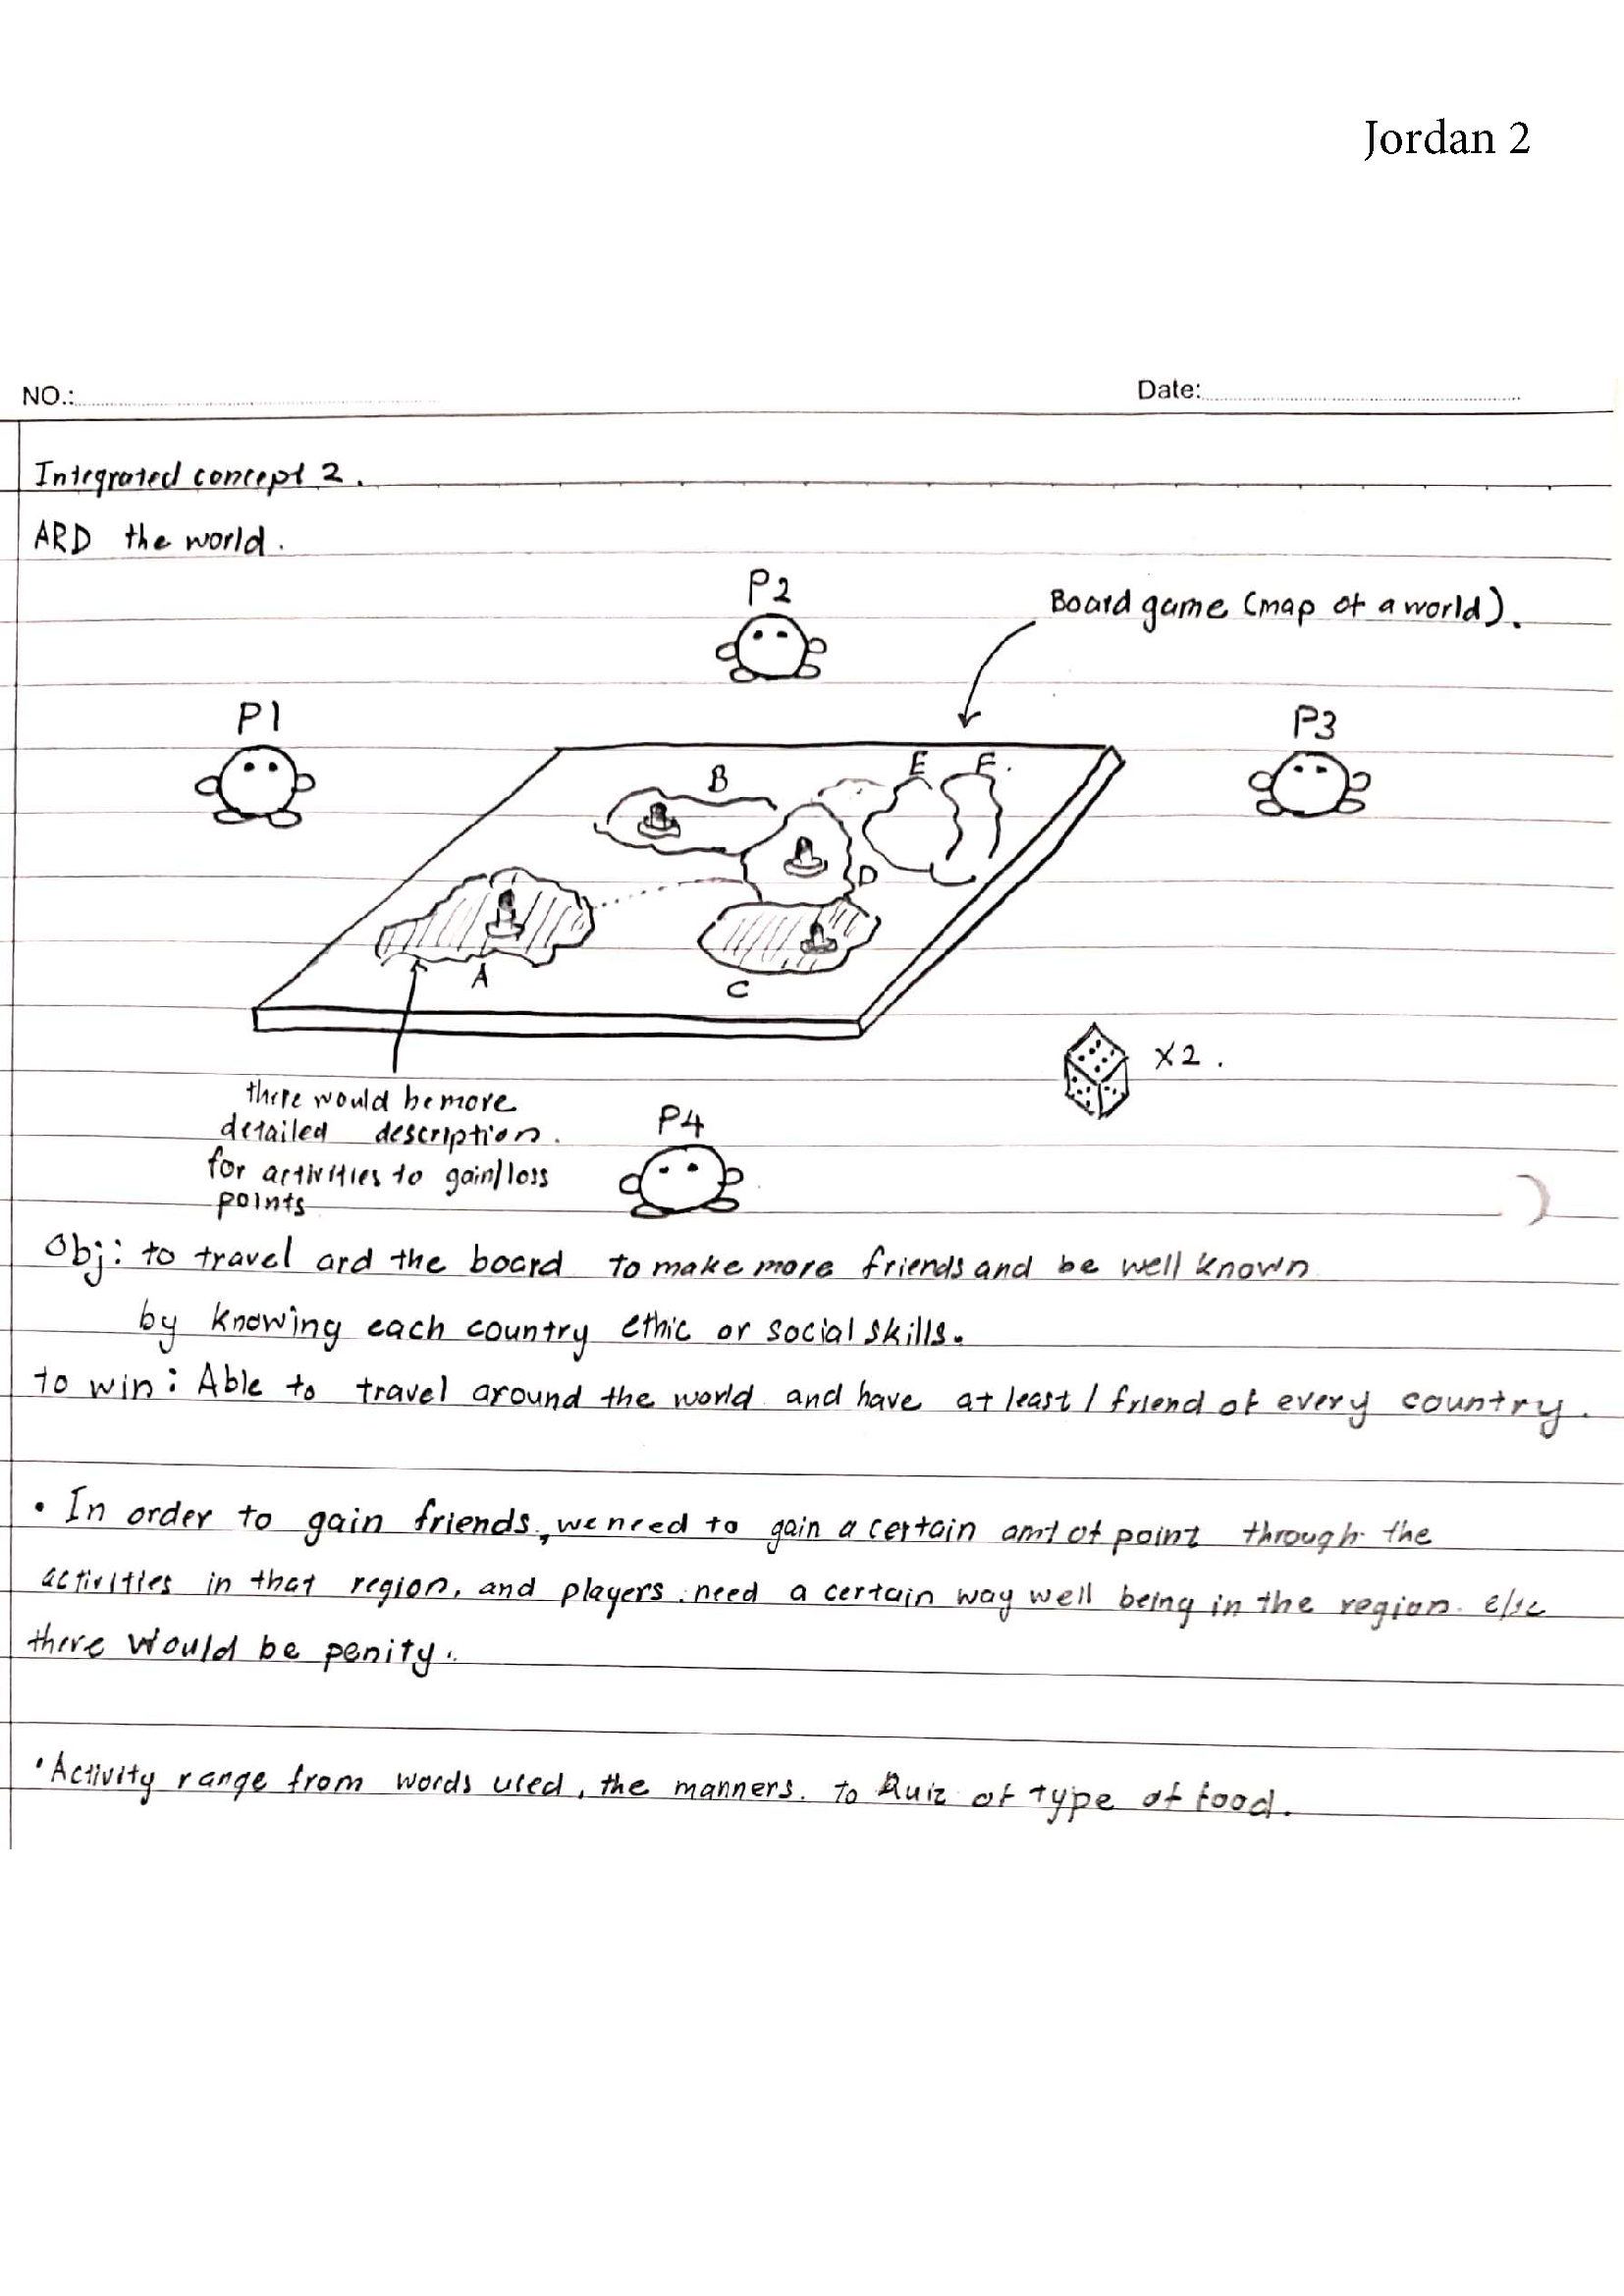 Jordan 2
NO.:
Date:
Integrated concept 2.
ARD the world.
P2
Board game (map of a world).
P1
P3
B
E
F.
D
A
C
X2.
there would be more
detailed description.
for activities to gain/loss
points
P4
Obj: to travel ard the board to make more friends and be well known
by knowing each country ethic or social skills.
to win: Able to travel around the world and have at least 1 friend of every country.
• In order to gain friends, we need to gain a certain amt of point through the
activities in that region, and players need a certain way well being in the region. else
there would be penity.
• Activity range from words used, the manners. to Quiz of type of food.